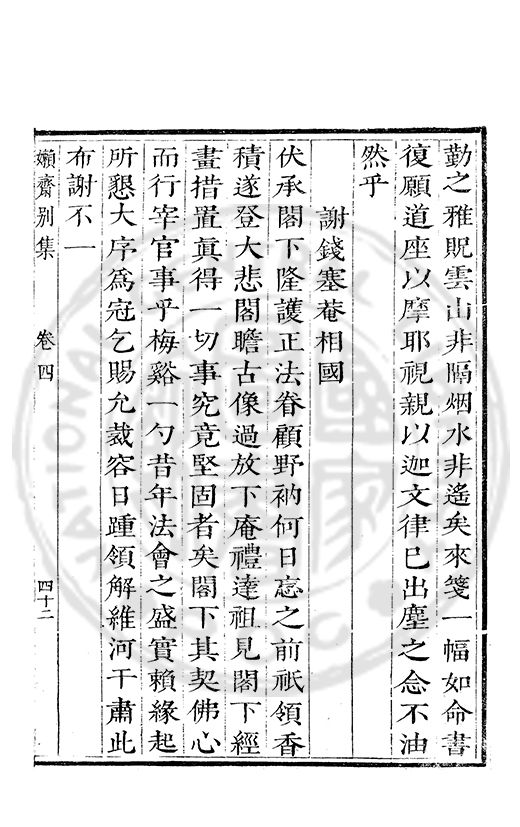 勤之雅貺雲山非隔烟水非遙矣來箋一幅如命書
復願道座以摩耶視親以迦文律巳出塵之念不油
然乎
謝錢塞菴相國
伏承閣下隆護正法眷顧野衲何日忘之前祇領香
積遂登大悲閣瞻古像過放下庵禮達祖見閣下經
畫措置眞得一切事究竟堅固者矣閣下其契佛心
而行宰官事乎梅谿一勺昔年法會之盛實賴緣起
所懇大序爲冠乞賜允裁容日踵領解維河干肅此
布謝不一
嬾齋別集
卷四
四十二